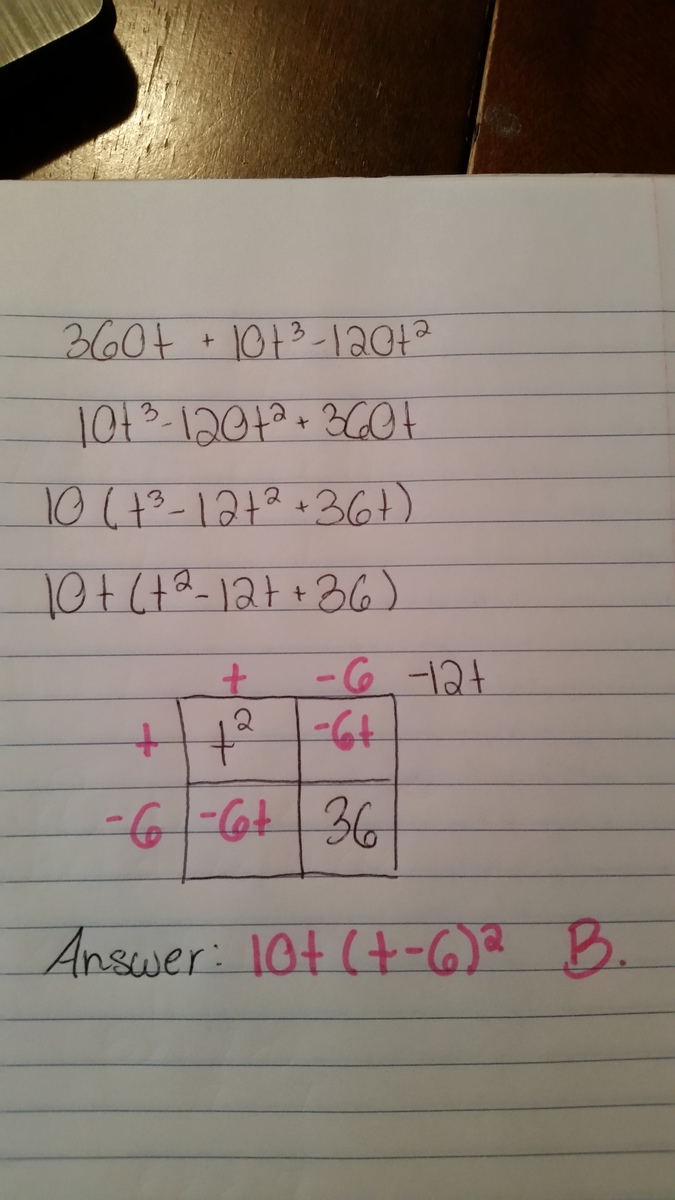 360t + 10t³-120t²
10t³-120t²+360t
10(t³-12t²+36t)
10t(t²-12t+36)
t -6 -12t
t t² -6t
-6 -6t 36
Answer: 10t(t-6)² B.